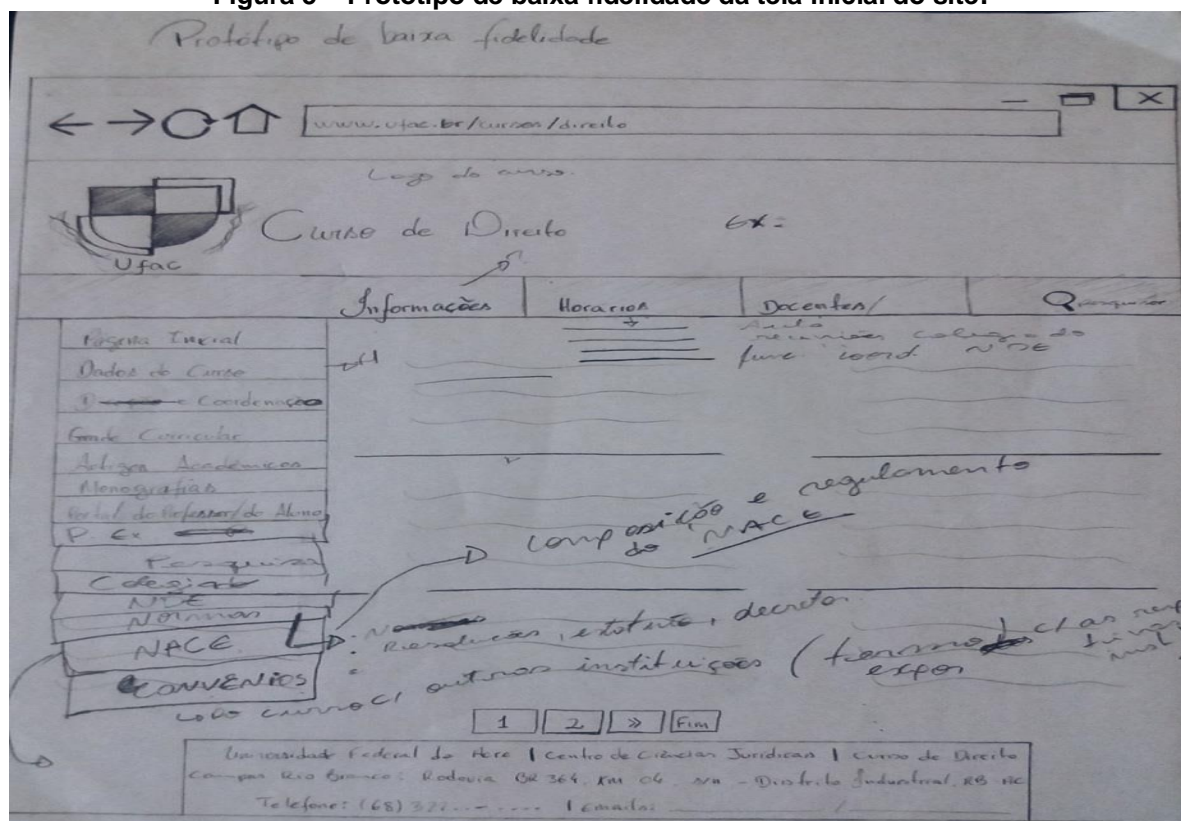 Figura 3 – Protótipo de baixa fidelidade da tela inicial do site.
Protótipo de baixa fidelidade
www.ufac.br/cursos/direito
Logo do curso.
Curso de Direito
Ex:
Ufac
Informações
Horarios
Docentes/
Pesquisar
Página Inicial
Dados do Curso
Coordenação
Grade Curricular
Artigos Acadêmicos
Monografias
Portal do Professor/do Aluno
P. Ex
Pesquisa
Colegiado
NDE
Normas
NACE
CONVÊNIOS
reuniões colegiado
func. coord. NDE
composição e regulamento
do NACE
Resoluções, estatuto, decretos.
outras instituições (
1 2 » Fim
Universidade Federal do Acre | Centro de Ciências Jurídicas | Curso de Direito
Campus Rio Branco: Rodovia BR 364, Km 04, s/n - Distrito Industrial, RB AC
Telefone: (68) 322 | Emails: /